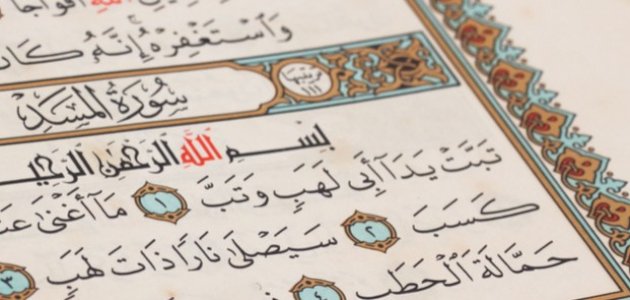 الله أفواجا
وَٱسْتَغْفِرْهُ إِنَّهُ كَانَ
سُورَةُ الْمَسَدِ
بِسْمِ اللَّهِ الرَّحْمَنِ الرَّحِي
تَبَّتْ يَدَآ أَبِي لَهَبٍ وَتَبَّ ١ مَآ أَغْنَىٰ عَنْ
كَسَبَ ٢ سَيَصْلَىٰ نَارًا ذَاتَ لَهَبٍ ٣
حَمَّالَةَ ٱلْحَطَبِ ٤